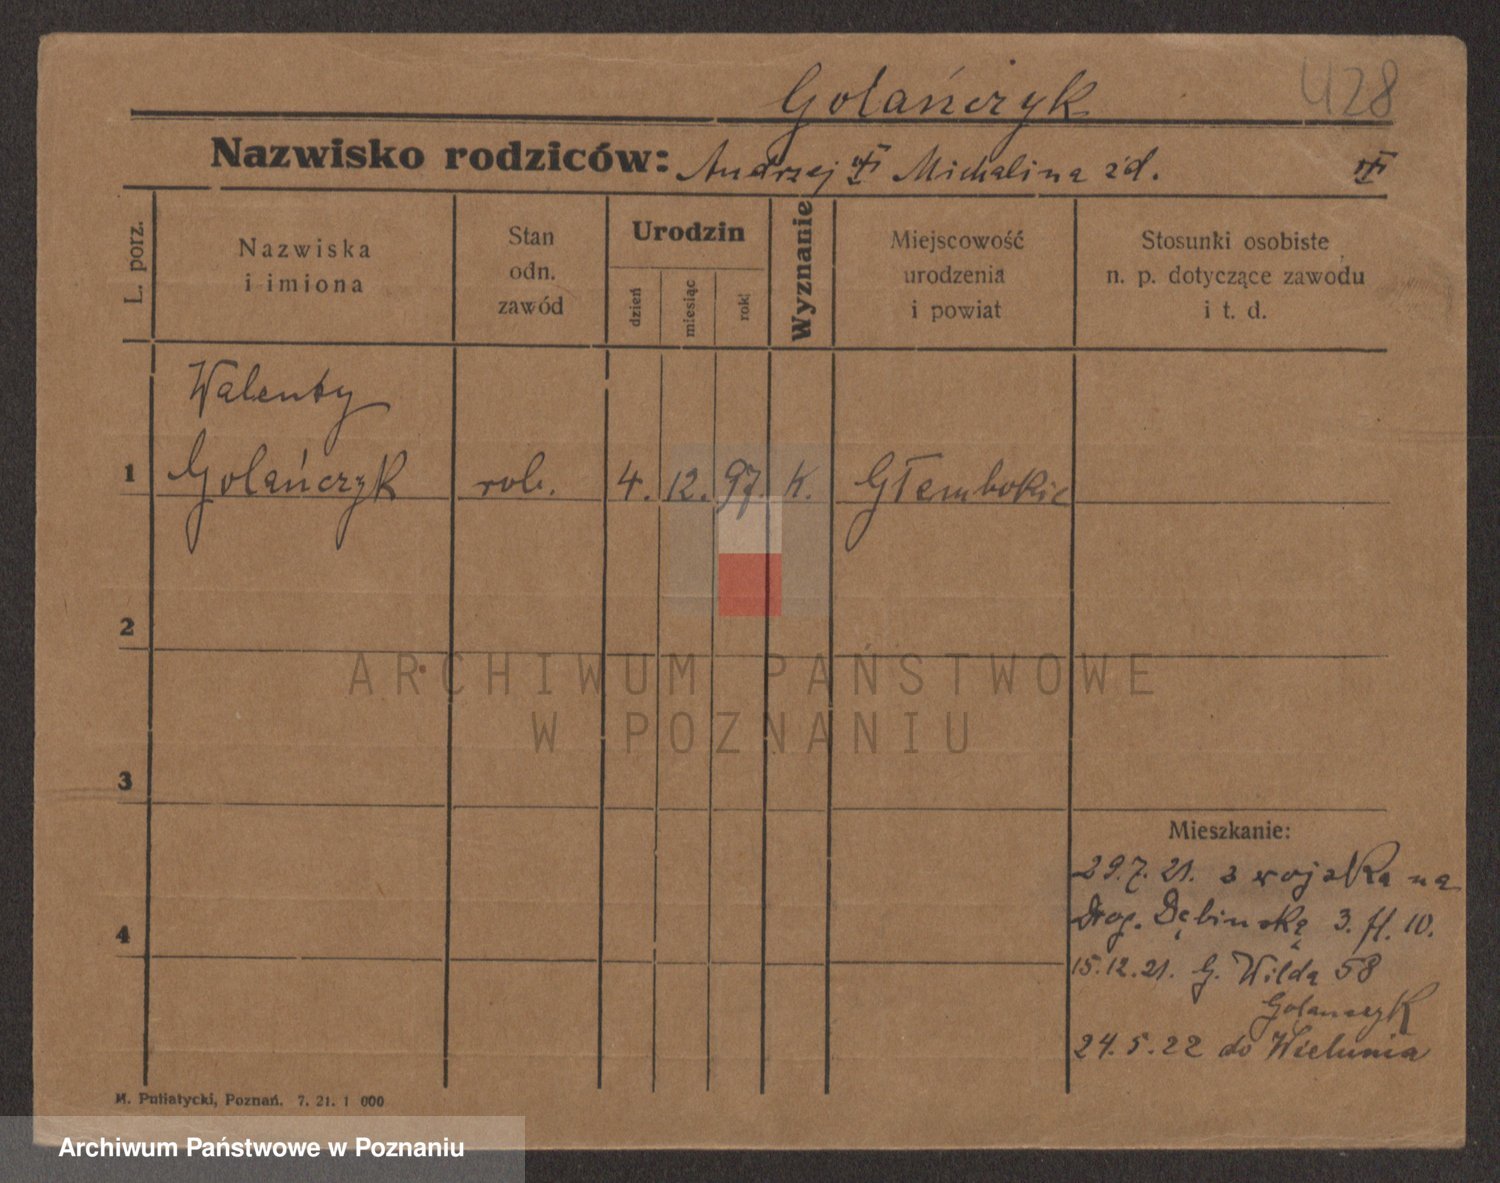 Golańczyk 428
Nazwisko rodziców: Andrzej Michalina zd.
L. porz.
Nazwiska
i imiona
Stan
odn.
zawód
Urodzin
dzień
miesiąc
rok
Wyznanie
Miejscowość
urodzenia
i powiat
Stosunki osobiste
n. p. dotyczące zawodu
i t. d.
Walenty
1 Golańczyk rob. 4. 12. 97. K. Głembokie
2
3
4
Mieszkanie:
29.7.21. z wojska na
Drog. Dębinską 3. fl. 10.
15.12.21. G. Wilda 58
Golanczyk
24.5.22 do Wielunia
M. Putiatycki, Poznań. 7. 21. 1 000
ARCHIWUM PAŃSTWOWE
W POZNANIU
Archiwum Państwowe w Poznaniu